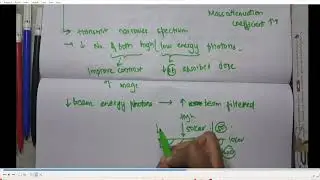 → transmit narrower spectrum
Mass attenuation
coefficient ↑
→ ↓ No. of both high/low energy photons.
Improve contrast
of image
↓ absorbed dose
↓ beam energy photons → ↑ beam filtered
high
50keV